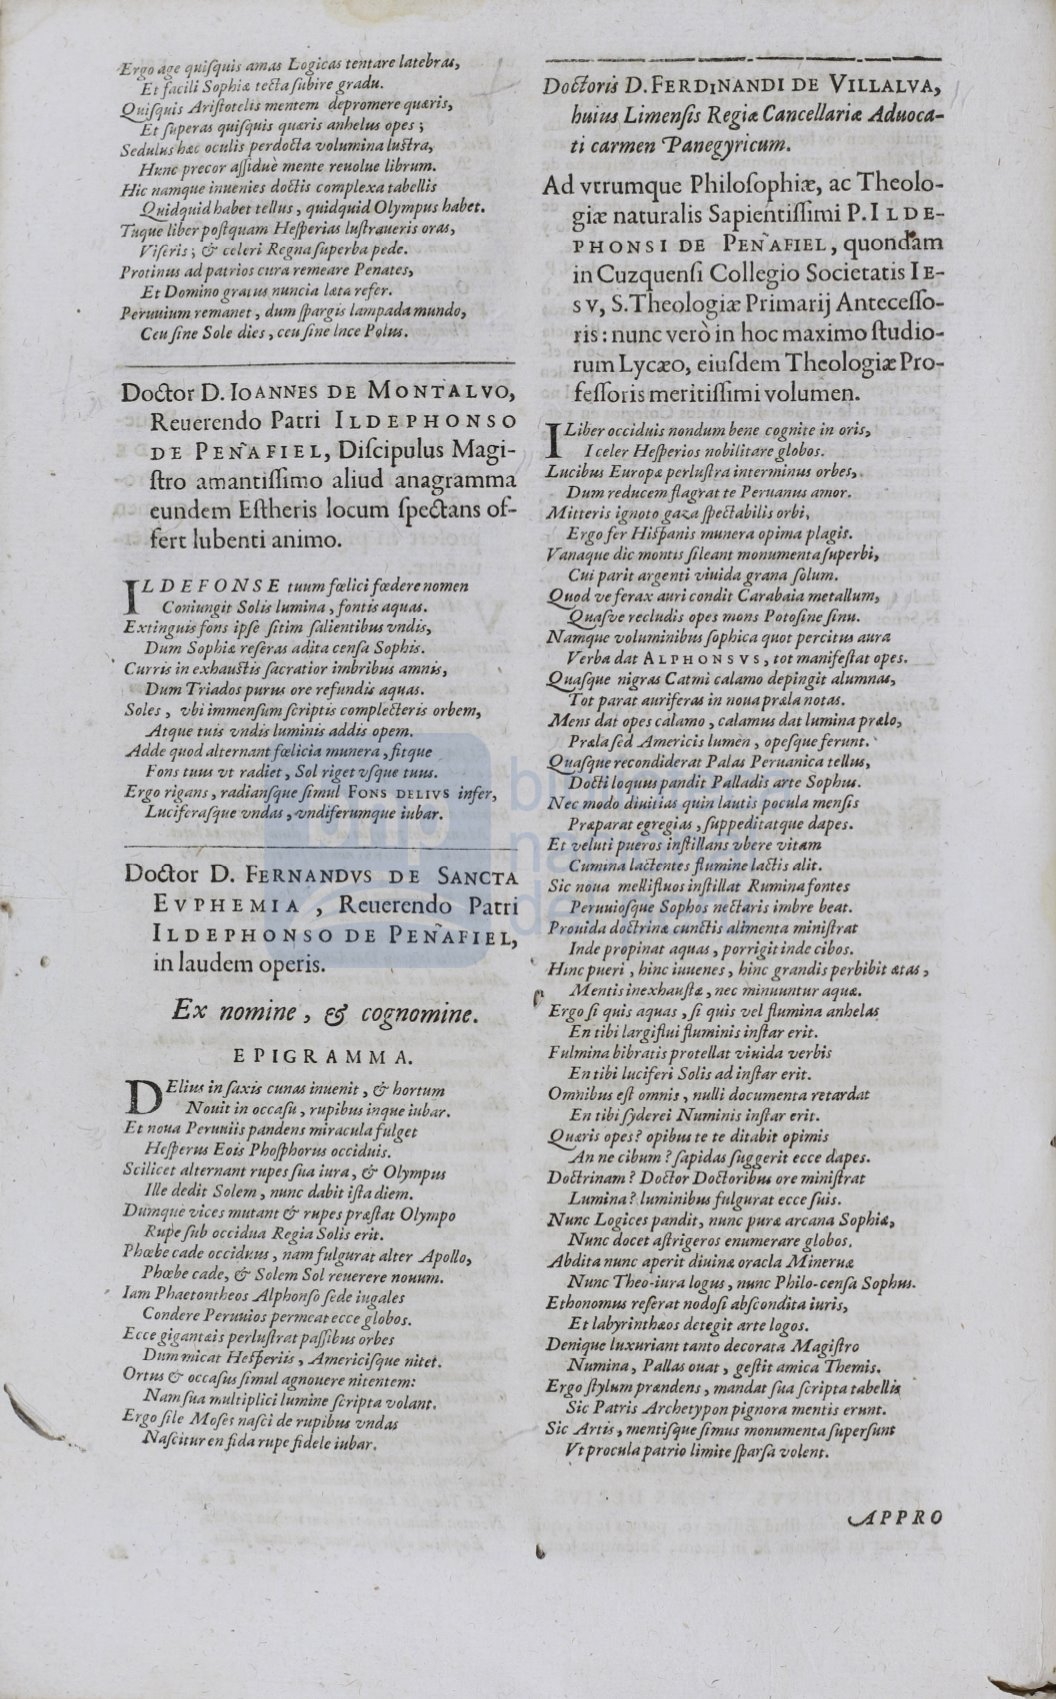 Ergo age quiſquis amas Logicas tentare latebras,
Et facili Sophiæ tecta ſubire gradu.
Quiſquis Ariſtotelis mentem depromere quæris,
Et ſuperas quiſquis quæris anhelus opes;
Sedulus hæc oculis perdocta volumina luſtra,
Hunc precor aſſiduè mente reuolue librum.
Hic namque inuenies doctis complexa tabellis
Quidquid habet tellus, quidquid Olympus habet.
Tuque liber poſtquam Heſperias luſtraueris oras,
Viſeris; & celeri Regna ſuperba pede.
Protinus ad patrios cura remeare Penates,
Et Domino gratus nuncia læta refer.
Peruuium remanet, dum ſpargis lampada mundo,
Ceu ſine Sole dies, ceu ſine luce Polus.
Doctor D. IOANNES DE MONTALVO,
Reuerendo Patri ILDEPHONSO
DE PEÑAFIEL, Diſcipulus Magi-
ſtro amantiſſimo aliud anagramma
eundem Eſtheris locum ſpectans of-
fert lubenti animo.
ILDEFONSE tuum fœlici fœdere nomen
Coniungit Solis lumina, fontis aquas.
Extinguis fons ipſe ſitim ſalientibus vndis,
Dum Sophiæ reſeras adita cenſa Sophis.
Curris in exhauſtis ſacratior imbribus amnis,
Dum Triados purus ore refundis aquas.
Soles, vbi immenſum ſcriptis complecteris orbem,
Atque tuis vndis luminis addis opem.
Adde quod alternant fœlicia munera, fitque
Fons tuus vt radiet, Sol riget vſque tuus.
Ergo rigans, radianſque ſimul FONS DELIVS infer,
Luciferaſque vndas, vndiferumque iubar.
Doctor D. FERNANDVS DE SANCTA
EVPHEMIA, Reuerendo Patri
ILDEPHONSO DE PEÑAFIEL,
in laudem operis.
Ex nomine, & cognomine.
EPIGRAMMA.
DElius in ſaxis cunas inuenit, & hortum
Nouit in occaſu, rupibus inque iubar.
Et noua Peruuiis pandens miracula fulget
Heſperus Eois Phoſphorus occiduis.
Scilicet alternant rupes ſua iura, & Olympus
Ille dedit Solem, nunc dabit iſta diem.
Dumque vices mutant & rupes præſtat Olympo
Rupe ſub occidua Regia Solis erit.
Phœbe cade occiduus, nam fulgurat alter Apollo,
Phœbe cade, & Solem Sol reuerere nouum.
Iam Phaetontheos Alphonſo ſede iugales
Condere Peruuios permeat ecce globos.
Ecce gigantæis perluſtrat paſſibus orbes
Dum micat Heſperiis, Americiſque nitet.
Ortus & occaſus ſimul agnouere nitentem:
Nam ſua multiplici lumine ſcripta volant.
Ergo ſile Moſes naſci de rupibus vndas
Naſcitur en fida rupe fidele iubar.
Doctoris D. FERDINANDI DE VILLALVA,
huius Limenſis Regiæ Cancellariæ Aduoca-
ti carmen Panegyricum.
Ad vtrumque Philoſophiæ, ac Theolo-
giæ naturalis Sapientiſſimi P. ILDE-
PHONSI DE PEÑAFIEL, quondam
in Cuzquenſi Collegio Societatis IE-
SV, S. Theologiæ Primarij Anteceſſo-
ris: nunc verò in hoc maximo ſtudio-
rum Lycæo, eiuſdem Theologiæ Pro-
feſſoris meritiſſimi volumen.
I Liber occiduis nondum bene cognite in oris,
I celer Heſperios nobilitare globos.
Lucibus Europæ perluſtra interminus orbes,
Dum reducem flagrat te Peruanus amor.
Mitteris ignoto gaza ſpectabilis orbi,
Ergo fer Hiſpanis munera opima plagis.
Vanaque dic montis ſileant monumenta ſuperbi,
Cui parit argenti viuida grana ſolum.
Quod ve ferax auri condit Carabaia metallum,
Quaſve recludis opes mons Potoſine ſinu.
Namque voluminibus ſophica quot percitus aura
Verba dat ALPHONSVS, tot manifeſtat opes.
Quaſque nigras Catmi calamo depingit alumnas,
Tot parat auriferas in noua præla notas.
Mens dat opes calamo, calamus dat lumina prælo,
Præla ſed Americis lumen, opeſque ferunt.
Quaſque recondiderat Palas Peruanica tellus,
Docti loquus pandit Palladis arte Sophus.
Nec modo diuitias quin lautis pocula menſis
Præparat egregias, ſuppeditatque dapes.
Et veluti pueros inſtillans vbere vitam
Cumina lactentes flumine lactis alit.
Sic noua mellifluos inſtillat Rumina fontes
Peruuioſque Sophos nectaris imbre beat.
Prouida doctrinæ cunctis alimenta miniſtrat
Inde propinat aquas, porrigit inde cibos.
Hinc pueri, hinc iuuenes, hinc grandis perbibit ætas,
Mentis inexhauſtæ, nec minuuntur aquæ.
Ergo ſi quis aquas, ſi quis vel flumina anhelas
En tibi largiflui fluminis inſtar erit.
Fulmina bibratis protellat viuida verbis
En tibi luciferi Solis ad inſtar erit.
Omnibus eſt omnis, nulli documenta retardat
En tibi ſyderei Numinis inſtar erit.
Quæris opes? opibus te te ditabit opimis
An ne cibum? ſapidas ſuggerit ecce dapes.
Doctrinam? Doctor Doctoribus ore miniſtrat
Lumina? luminibus fulgurat ecce ſuis.
Nunc Logices pandit, nunc puræ arcana Sophiæ,
Nunc docet aſtrigeros enumerare globos.
Abdita nunc aperit diuinæ oracla Mineruæ
Nunc Theo-iura logus, nunc Philo-cenſa Sophus.
Ethonomus reſerat nodoſi abſcondita iuris,
Et labyrinthæos detegit arte logos.
Denique luxuriant tanto decorata Magiſtro
Numina, Pallas ouat, geſtit amica Themis.
Ergo ſtylum prændens, mandat ſua ſcripta tabellis
Sic Patris Archetypon pignora mentis erunt.
Sic Artis, mentiſque ſimus monumenta ſuperſunt
Vt procula patrio limite ſparſa volent.
APPRO